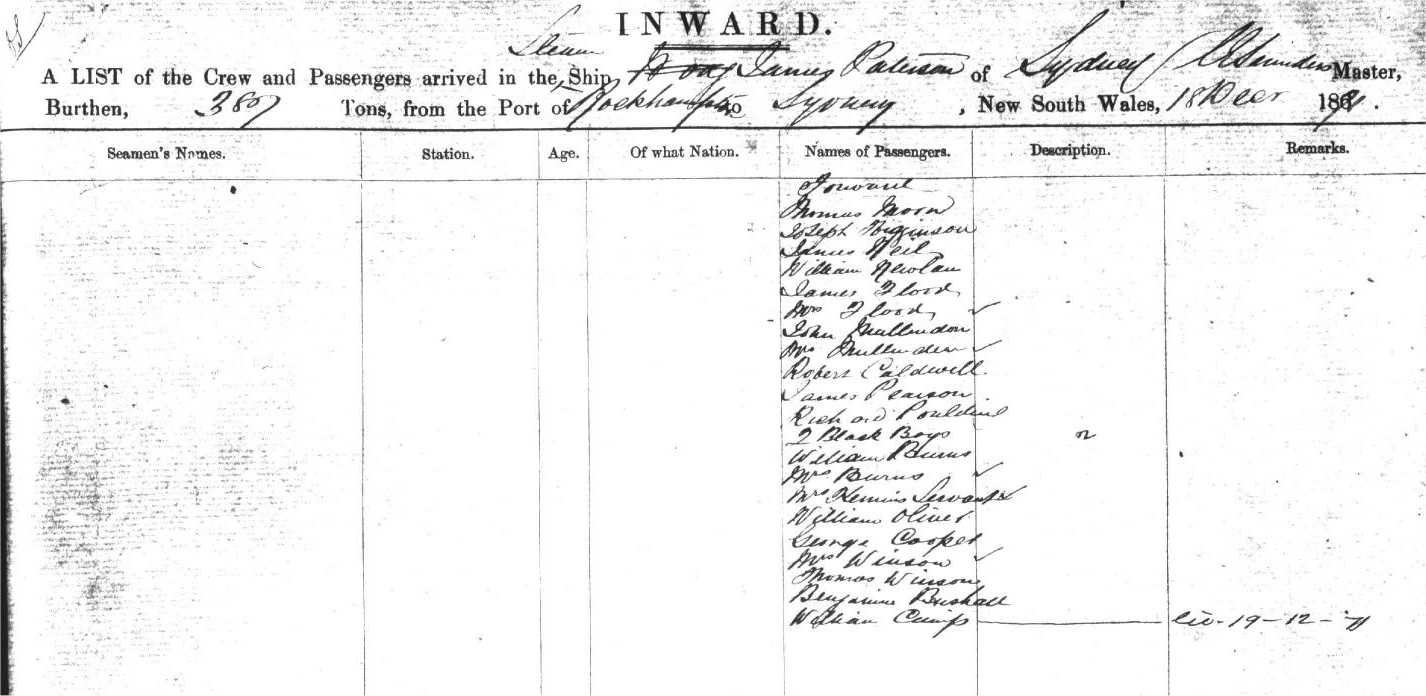 INWARD.
Steam
A LIST of the Crew and Passengers arrived in the Ship James Paterson of Sydney Saunders Master,
Burthen, 380 Tons, from the Port of Rockhampton to Sydney, New South Wales, 18 Decr 1871.
Seamen's Names. Station. Age. Of what Nation. Names of Passengers. Description. Remarks.
Forward
Thomas Moon
Joseph Higginson
James Neil
William Newlan
James Flood
Mrs Flood ✓
John Mullendon
Mrs Mullenden ✓
Robert Caldwell.
James Pearson.
Richard
2 Black Boys 2
William Burns
Mrs Burns ✓
Mrs Servant
William Oliver
George Cooper
Mrs Winson ✓
Thomas Winson
Benjamin
William 19-12-71